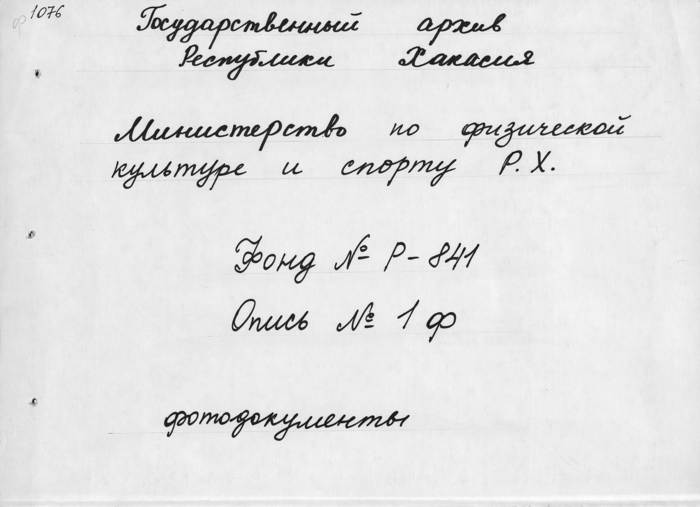 ф 1076
Государственный архив
Республики Хакасия
Министерство по физической
культуре и спорту Р.Х.
Фонд № Р-841
Опись № 1 ф
фотодокументы